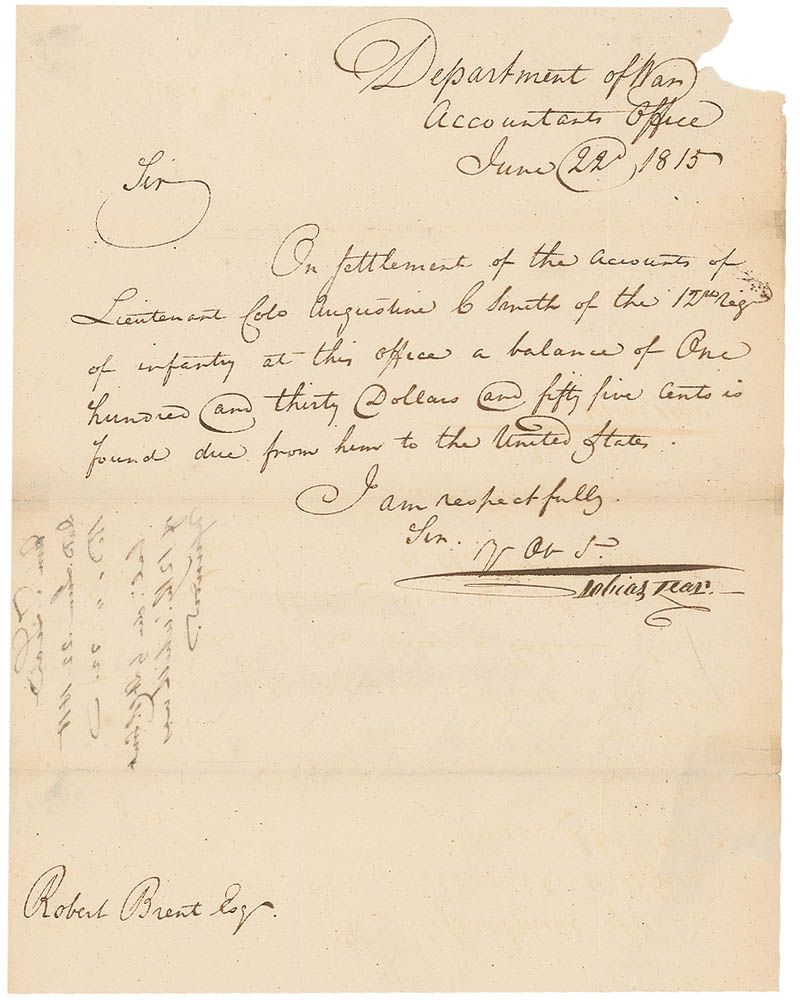 Department of War
Accountants Office
June 22d 1815
Sir
On settlement of the accounts of
Lieutenant Colo Augustine C Smith of the 12th regt
of infantry at this office a balance of One
hundred and thirty Dollars and fifty five Cents is
found due from him to the United States.
I am respectfully.
Sir.
Y Ob S.
Tobias Lear.
Robert Brent Esqr.